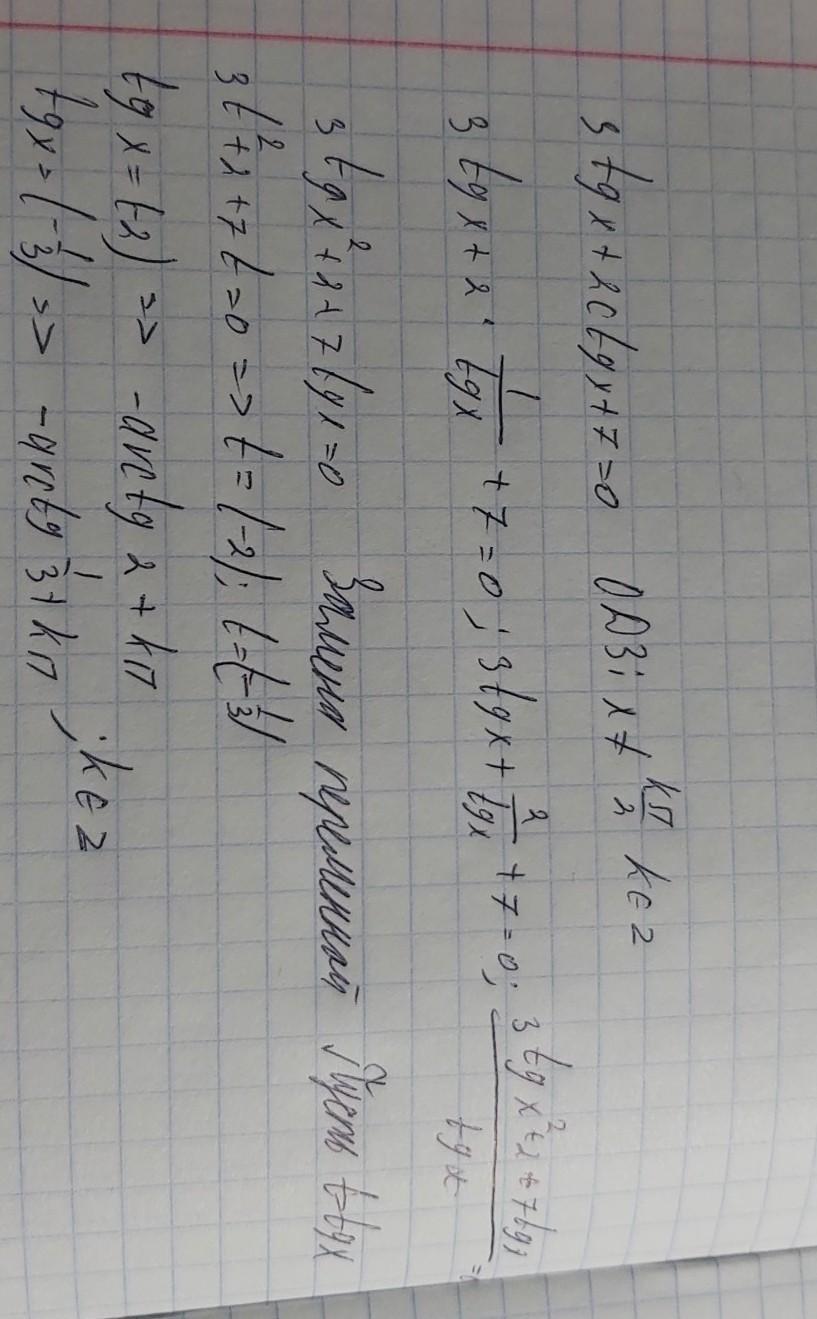 3 tg x + 2 ctg x + 7 = 0 ОДЗ: x ≠ kπ/2 k ∈ Z
3 tg x + 2 · 1/tg x + 7 = 0 ; 3 tg x + 2/tg x + 7 = 0 ; (3 tg x² + 2 + 7 tg x)/tg x = 0
3 tg x² + 2 + 7 tg x = 0 Замена переменной Пусть t = tg x
3t² + 2 + 7t = 0 => t = (-2); t = (-1/3)
tg x = (-2) => -arctg 2 + kπ
tg x = (-1/3) => -arctg 1/3 + kπ ; k ∈ Z